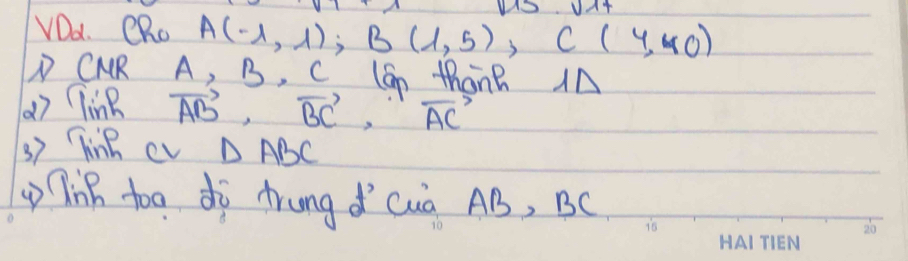 VD2. Cho A(-1,1); B(1,5), C(4,0)
1) CMR A, B, C lập thành 1Δ
2) Tính AB, BC, AC
3) Tính CV Δ ABC
4) Tính toạ độ trung đ' của AB, BC
0 5 10 15 20
HAI TIEN